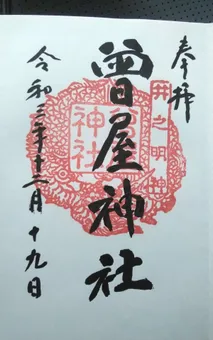 奉拝
井之明神
曽屋神社
曽屋神社
令和三年十二月十九日